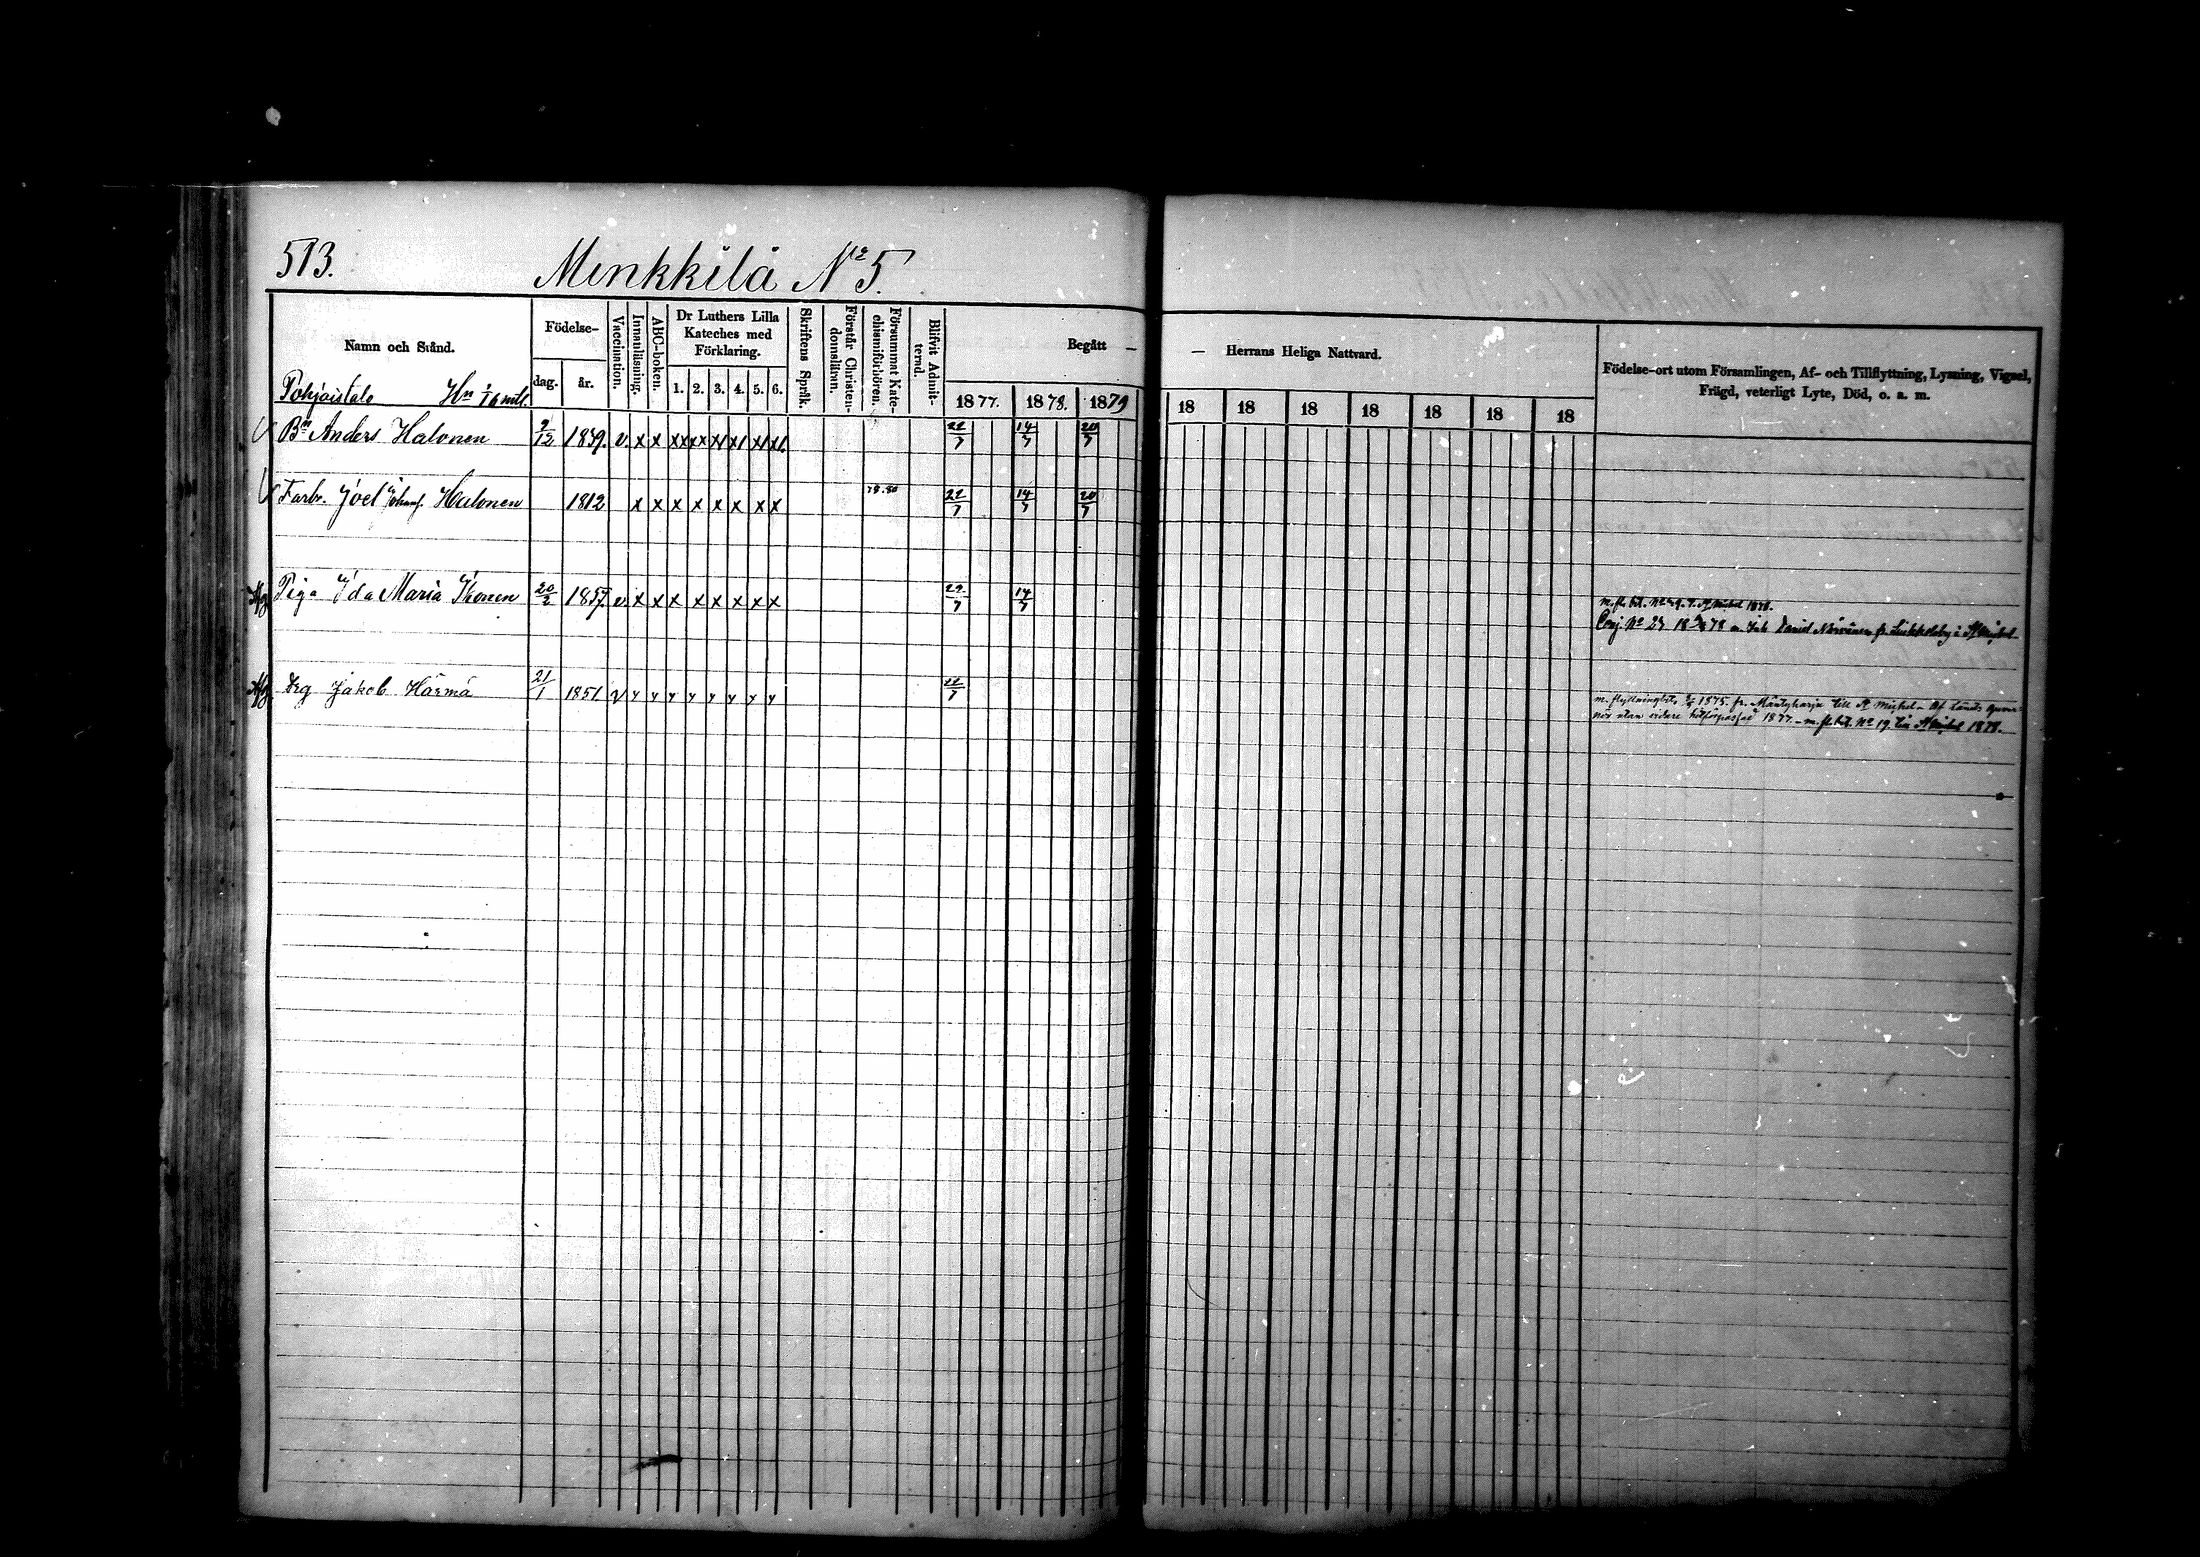 513. Minkkilä No 5.
Namn och Stånd.
Födelse-
dag. år.
Vaccination.
Innanläsning.
ABC-boken.
Dr Luthers Lilla
Kateches med
Förklaring.
1. 2. 3. 4. 5. 6.
Skriftens Språk.
Förstår Christen-
domsläran.
Försummat Kate-
chismiförhören.
Blifvit Admit-
terad.
Begått — — Herrans Heliga Nattvard.
1877. 1878. 1879 18 18 18 18 18 18 18
Födelse-ort utom Församlingen, Af- och Tillflyttning, Lysning, Vigsel,
Frägd, veterligt Lyte, Död, o. a. m.
Pohjoistalo Hn 1/6 mtl.
Bn Anders Halonen 9/12 1839. v. x x xx xx x/ x/ x/ x/. 22/7 14/7 20/7
Farbr. Joel Johans. Halonen 1812 x x x x x x x x 79.80 22/7 14/7 20/7
Afg Piga Ida Maria Ikonen 20/2 1857. v. x x x x x x x x 22/7 14/7
m. fl. bet. No 29. t. St Michel 1878.
Conj. No 27 1878 m. Joh. David
Afg Drg Jakob Härmä 21/1 1851. v y y y y y y y y 22/7
m. flyttningbet. 1875 fr. Mäntyharju till St Michel – Af Länds guver-
nör utan vidare 1877 – m. fl. bet. No 19. till St Michel 1878.